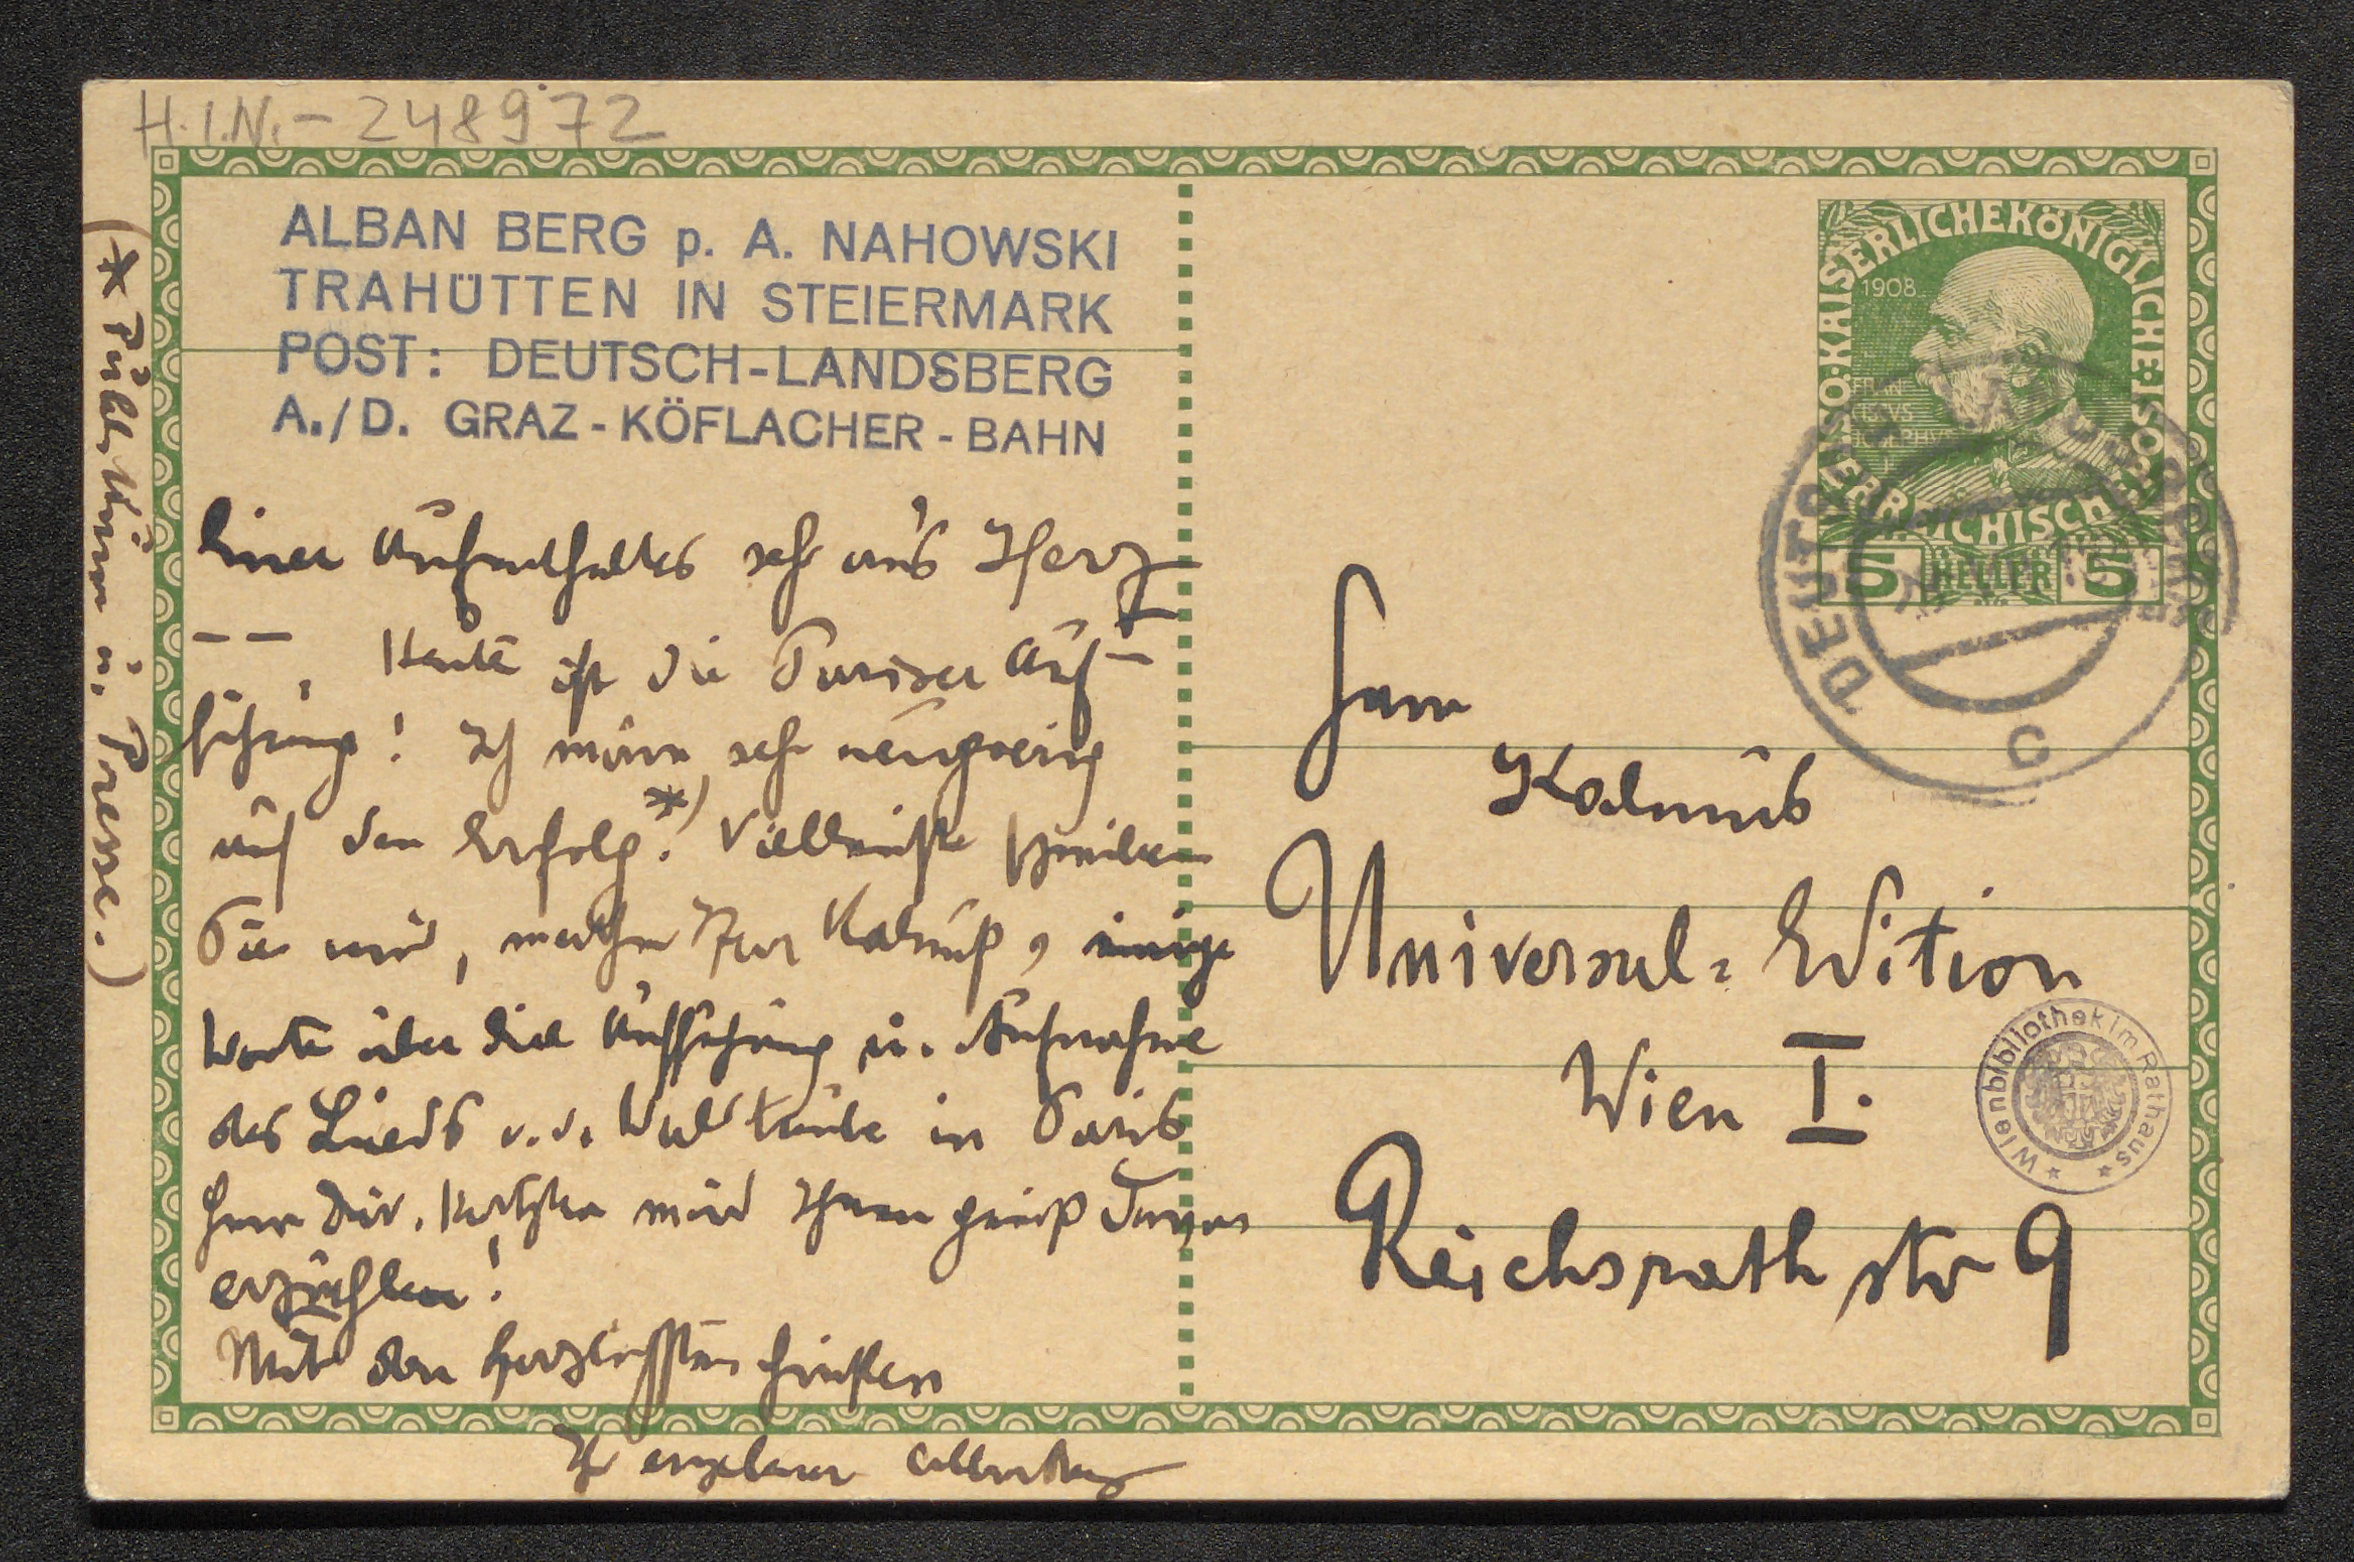 H.I.N.- 248972
ALBAN BERG p. A. NAHOWSKI
TRAHÜTTEN IN STEIERMARK
POST: DEUTSCH-LANDSBERG
A./D. GRAZ-KÖFLACHER-BAHN
Aufenthaltes sehr an's Herz
— —. Heute ist die Pariser Auf-
führung! Ich wäre sehr neugierig
auf den Erfolg.*) Vielleicht schreiben
Sie mir, werther Herr Kalmus, einige
Worte über die Aufführung u. Aufnahme
des Lieds v. d. Waldtaube in Paris
Herr Dir. Hertzka wird Ihnen gewiß davon
erzählen!
Mit den herzlichsten Grüßen
Ihr ergebener Alban Berg
(* Publikum u. Presse.)
KAISERLICHEKÖNIGLICHE
ÖSTERREICHISCHE
1908
5 HELLER 5
DEUTSCH
C
Herrn
Kalmus
Universal-Edition
Wien I.
Reichsrathstr 9
Wienbibliothek im Rathaus